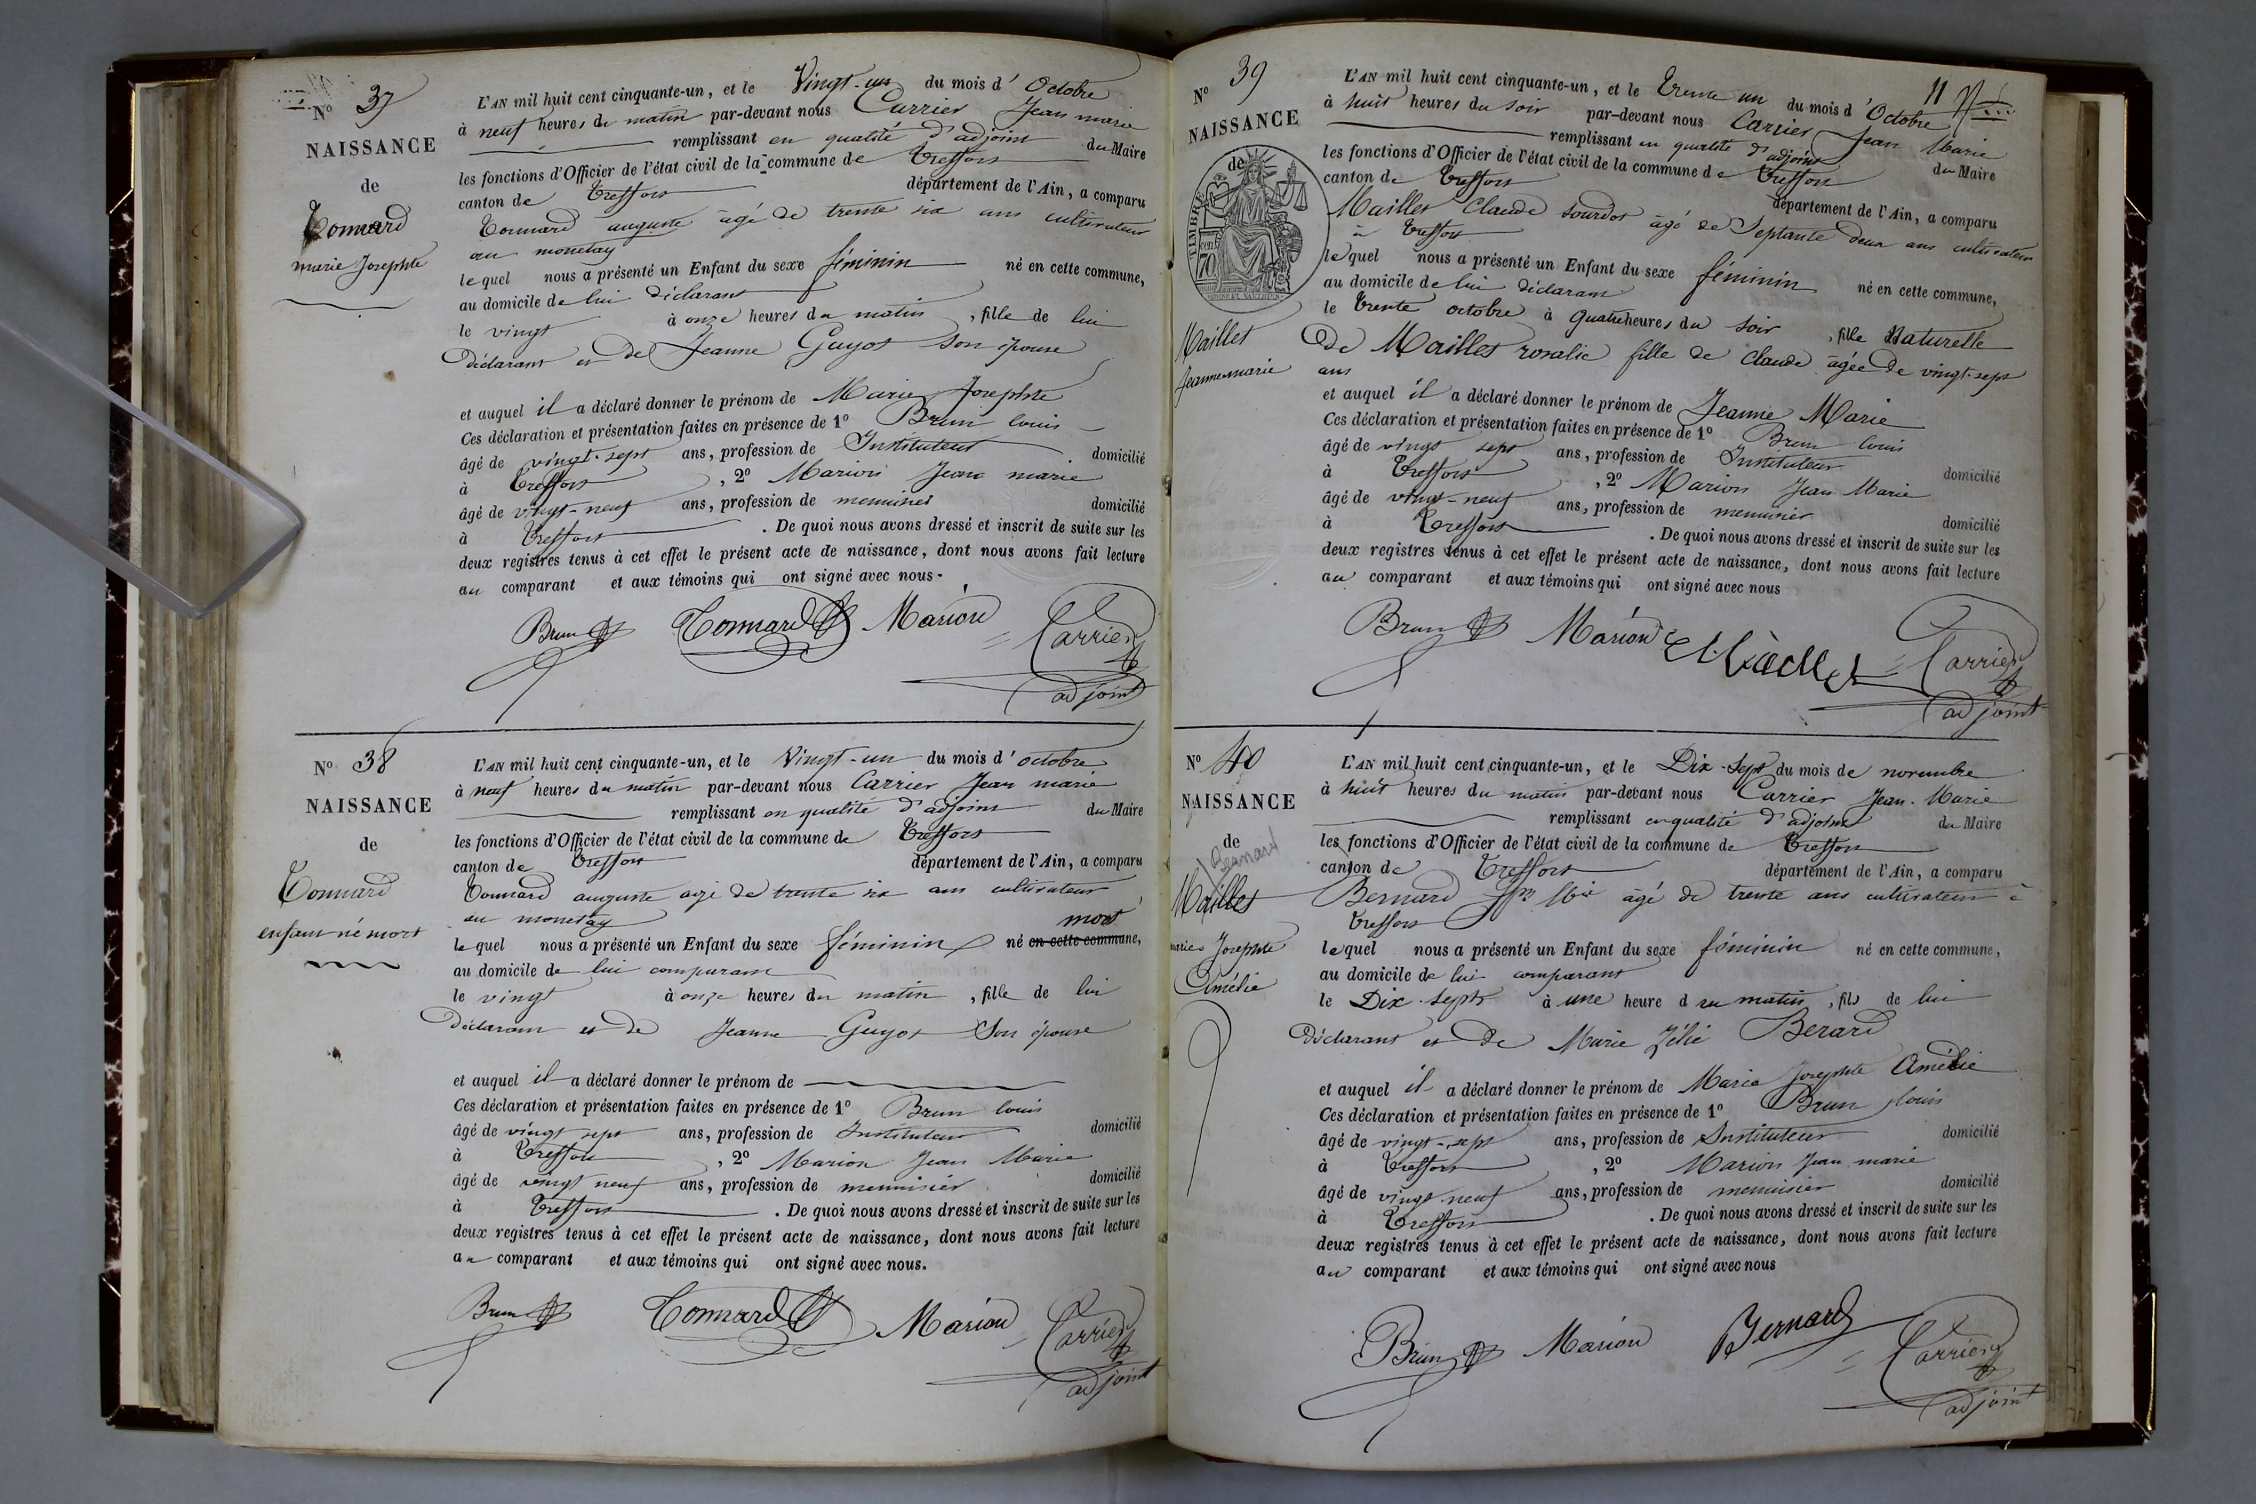 No 37
NAISSANCE
de
Tonnard
marie Josephte
L'AN mil huit cent cinquante-un, et le Vingt-un du mois d'Octobre
à neuf heures du matin par-devant nous Carrier Jean marie
remplissant en qualité d'adjoint du Maire
les fonctions d'Officier de l'état civil de la commune de Treffort
canton de Treffort département de l'Ain, a comparu
Tonnard auguste âgé de trente six ans cultivateur
au monetay
lequel nous a présenté un Enfant du sexe féminin né en cette commune,
au domicile de lui déclarant
le vingt à onze heures du matin, fille de lui
déclarant et de Jeanne Guyot son épouse
et auquel il a déclaré donner le prénom de Marie Josephte
Ces déclaration et présentation faites en présence de 1o Brun louis
âgé de vingt-sept ans, profession de Instituteur domicilié
à Treffort, 2o Marion Jean marie
âgé de vingt-neuf ans, profession de menuisier domicilié
à Treffort. De quoi nous avons dressé et inscrit de suite sur les
deux registres tenus à cet effet le présent acte de naissance, dont nous avons fait lecture
au comparant et aux témoins qui ont signé avec nous.
Brun Tonnard Marion Carrier
adjoint
No 38
NAISSANCE
de
Tonnard
enfant né mort
L'AN mil huit cent cinquante-un, et le Vingt-un du mois d'octobre
à neuf heures du matin par-devant nous Carrier Jean marie
remplissant en qualité d'adjoint du Maire
les fonctions d'Officier de l'état civil de la commune de Treffort
canton de Treffort département de l'Ain, a comparu
Tonnard auguste agé de trente six ans cultivateur
au monetay mort
lequel nous a présenté un Enfant du sexe féminin né en cette commune,
au domicile de lui comparant
le vingt à onze heures du matin, fille de lui
déclarant et de Jeanne Guyot Son épouse
et auquel il a déclaré donner le prénom de
Ces déclaration et présentation faites en présence de 1o Brun louis
âgé de vingt sept ans, profession de Instituteur domicilié
à Treffort, 2o Marion Jean Marie
âgé de vingt neuf ans, profession de menuisier domicilié
à Treffort. De quoi nous avons dressé et inscrit de suite sur les
deux registres tenus à cet effet le présent acte de naissance, dont nous avons fait lecture
au comparant et aux témoins qui ont signé avec nous.
Brun Tonnard Marion Carrier
adjoint
11
No 39
NAISSANCE
de
TIMBRE
70
Maillet
Jeanne marie
L'AN mil huit cent cinquante-un, et le Trente un du mois d'Octobre
à huit heures du soir par-devant nous Carrier Jean Marie
remplissant en qualité d'adjoint du Maire
les fonctions d'Officier de l'état civil de la commune de Treffort
canton de Treffort département de l'Ain, a comparu
Maillet Claude Sourdot âgé de Septante deux ans cultivateur
à Treffort
lequel nous a présenté un Enfant du sexe féminin né en cette commune,
au domicile de lui déclarant
le Trente octobre à quatre heures du soir, fille Naturelle
De Maillet rosalie fille de Claude âgée de vingt-sept
ans
et auquel il a déclaré donner le prénom de Jeanne Marie
Ces déclaration et présentation faites en présence de 1o Brun louis
âgé de vingt sept ans, profession de Instituteur
à Treffort, 2o Marion Jean Marie domicilié
âgé de vingt-neuf ans, profession de menuisier
à Treffort domicilié. De quoi nous avons dressé et inscrit de suite sur les
deux registres tenus à cet effet le présent acte de naissance, dont nous avons fait lecture
au comparant et aux témoins qui ont signé avec nous
Brun Marion Maillet Carrier
adjoint
No 40
NAISSANCE
de
Bernard
Maillet
marie Josephte
Amélie
L'AN mil huit cent cinquante-un, et le Dix-Sept du mois de novembre
à huit heures du matin par-devant nous Carrier Jean-Marie
remplissant en qualité d'adjoint du Maire
les fonctions d'Officier de l'état civil de la commune de Treffort
canton de Treffort département de l'Ain, a comparu
Bernard âgé de trente ans cultivateur à
Treffort
lequel nous a présenté un Enfant du sexe féminin né en cette commune,
au domicile de lui comparant
le Dix-sept à une heure du matin, fils de lui
déclarant et de Marie Zélie Berard
et auquel il a déclaré donner le prénom de Marie Josephte Amélie
Ces déclaration et présentation faites en présence de 1o Brun louis
âgé de vingt-sept ans, profession de Instituteur domicilié
à Treffort, 2o Marion Jean marie
âgé de vingt neuf ans, profession de menuisier domicilié
à Treffort. De quoi nous avons dressé et inscrit de suite sur les
deux registres tenus à cet effet le présent acte de naissance, dont nous avons fait lecture
au comparant et aux témoins qui ont signé avec nous
Brun Marion Bernard Carrier
adjoint